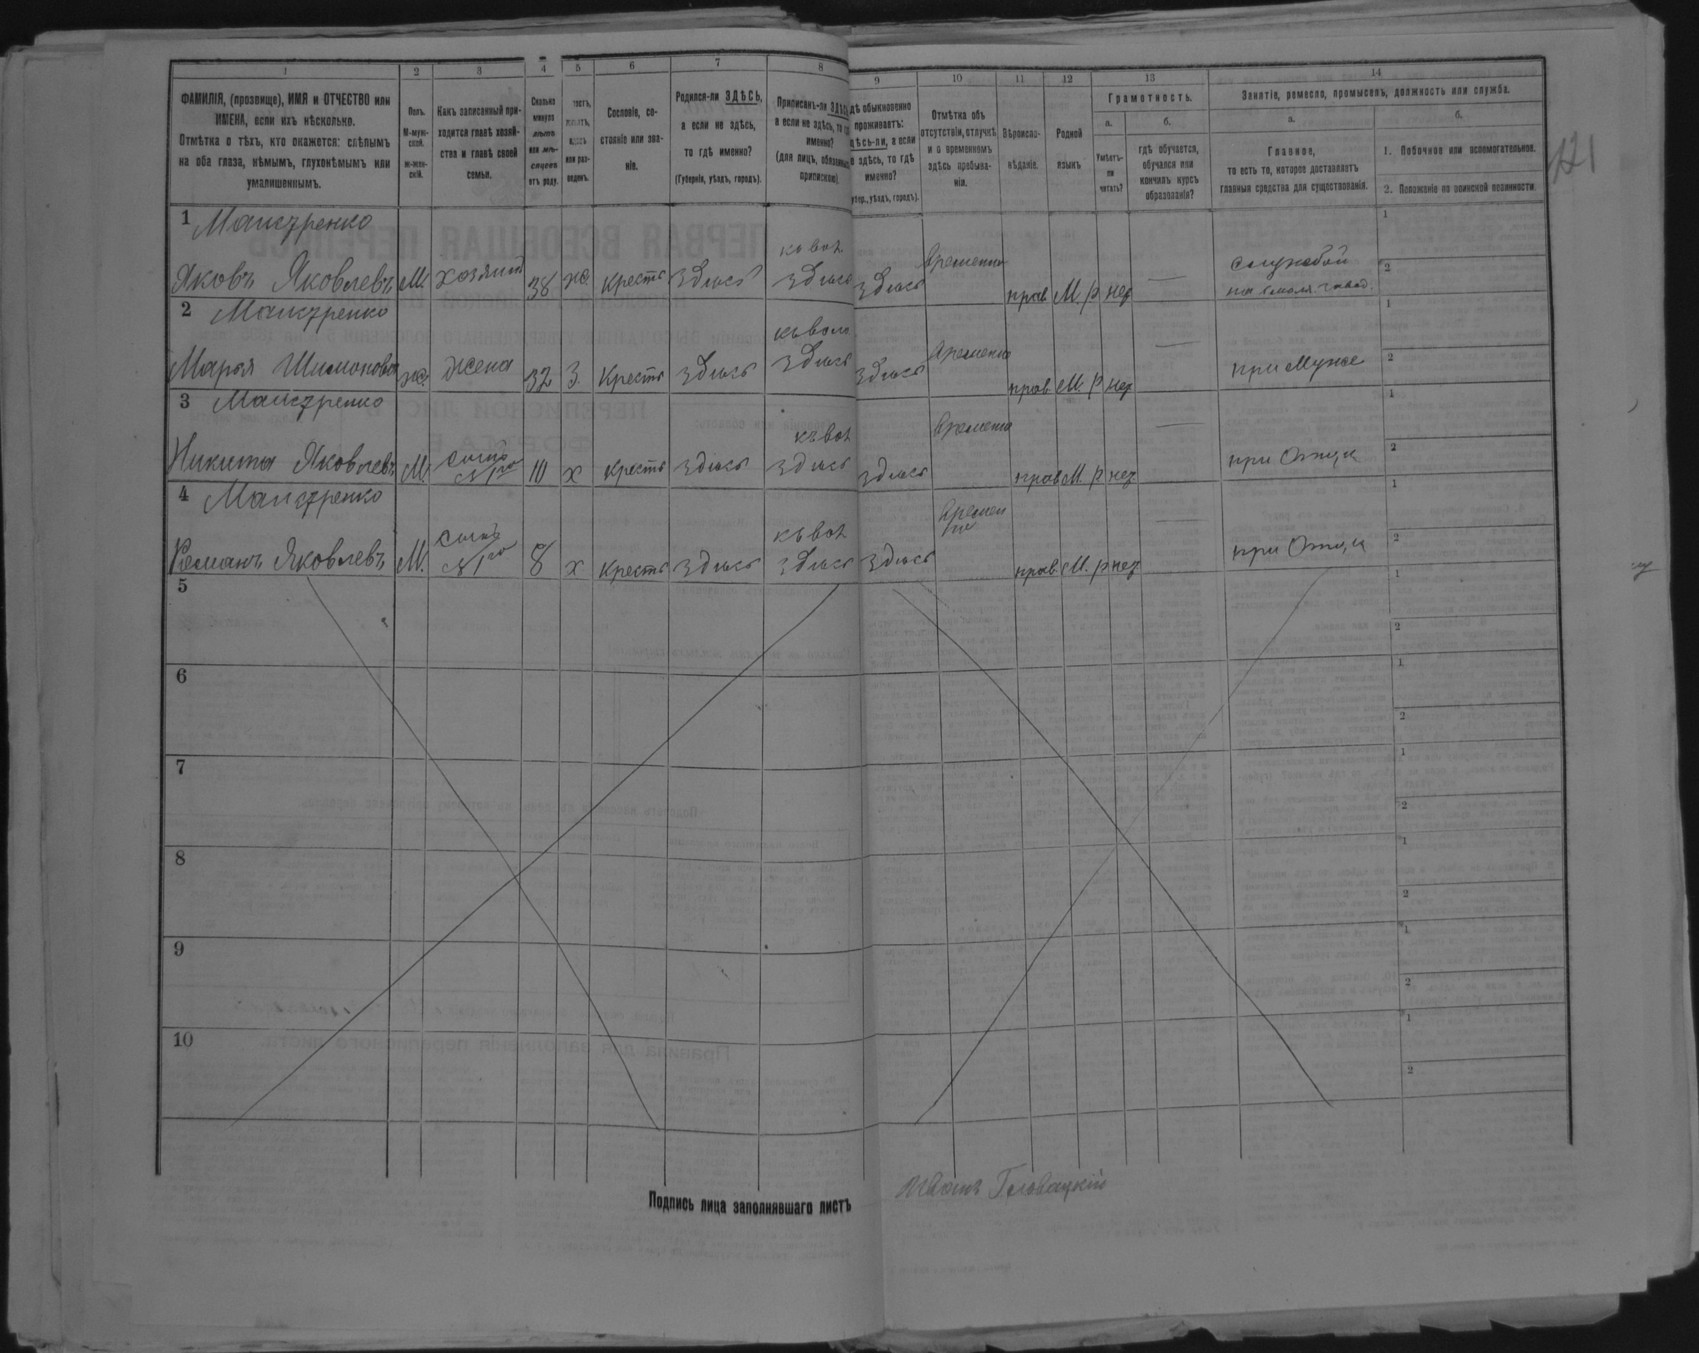 1 2 3 4 5 6 7 8 9 10 11 12 13 14
ФАМИЛІЯ, (прозвище), ИМЯ и ОТЧЕСТВО или
ИМЕНА, если ихъ нѣсколько.
Отмѣтка о тѣхъ, кто окажется: слѣпымъ
на оба глаза, нѣмымъ, глухонѣмымъ или
умалишеннымъ.
Полъ.
М-муж-
ской.
Ж-жен-
скій.
Какъ записанный при-
ходится главѣ хозяй-
ства и главѣ своей
семьи.
Сколько
минуло
лѣтъ
или мѣ-
сяцевъ
отъ роду.
или раз-
веденъ.
Сословіе, со-
стояніе или зва-
ніе.
Родился-ли ЗДѢСЬ,
а если не здѣсь,
то гдѣ именно?
(Губернія, уѣздъ, городъ).
Приписанъ-ли ЗДѢСЬ,
а если не здѣсь, то гдѣ
именно?
(для лицъ, обязанныхъ
припискою).
гдѣ обыкновенно
проживаетъ:
здѣсь-ли, а если
не здѣсь, то гдѣ
именно?
губер., уѣздъ, городъ).
Отмѣтка объ
отсутствіи, отлучкѣ
и о временномъ
здѣсь пребыва-
ніи.
Вѣроиспо-
вѣданіе.
Родной
языкъ
Грамотность.
а.
Умѣетъ-
ли
читать?
б.
гдѣ обучается,
обучался или
кончилъ курсъ
образованія?
Занятіе, ремесло, промыселъ, должность или служба.
а.
Главное,
то есть то, которое доставляетъ
главныя средства для существованія.
б.
1. Побочное или вспомогательное.
2. Положеніе по воинской повинности.
121
1 Маистренко
Яковъ Яковлевъ М. хозяинъ 38 же крестъ Здѣсь
къ вол
Здѣсь
Здѣсь
временно
прав М. р нет —
службой
1
2
2 Маистренко
Марья жена 32 З. Крестъ Здѣсь
къ вол
Здѣсь
Здѣсь
временно
прав М. р нет —
при Муже
1
2
3 Маистренко
Никита Яковлевъ М. сынъ 10 х крестъ Здѣсь
къ вол
Здѣсь
Здѣсь
временно
прав М. р нет —
при Отцѣ
1
2
4 Маистренко
Романъ Яковлевъ М. Сынъ 8 х крестъ Здѣсь
къ вол
Здѣсь
Здѣсь
времен
но
прав. М. р нет —
при Отцѣ
1
2
5
1
2
6
1
2
7
1
2
8
1
2
9
1
2
10
1
2
Подпись лица заполнявшаго листъ